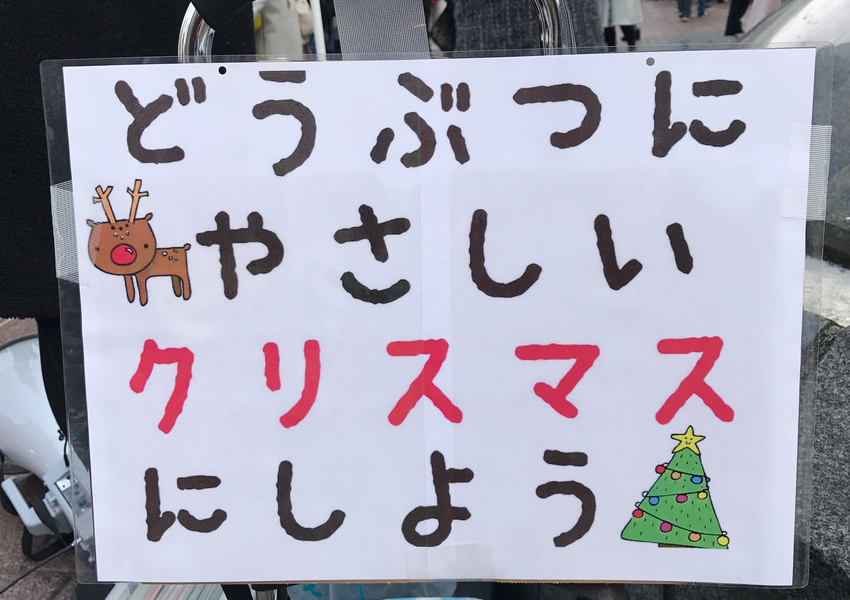 どうぶつに
やさしい
クリスマス
にしよう